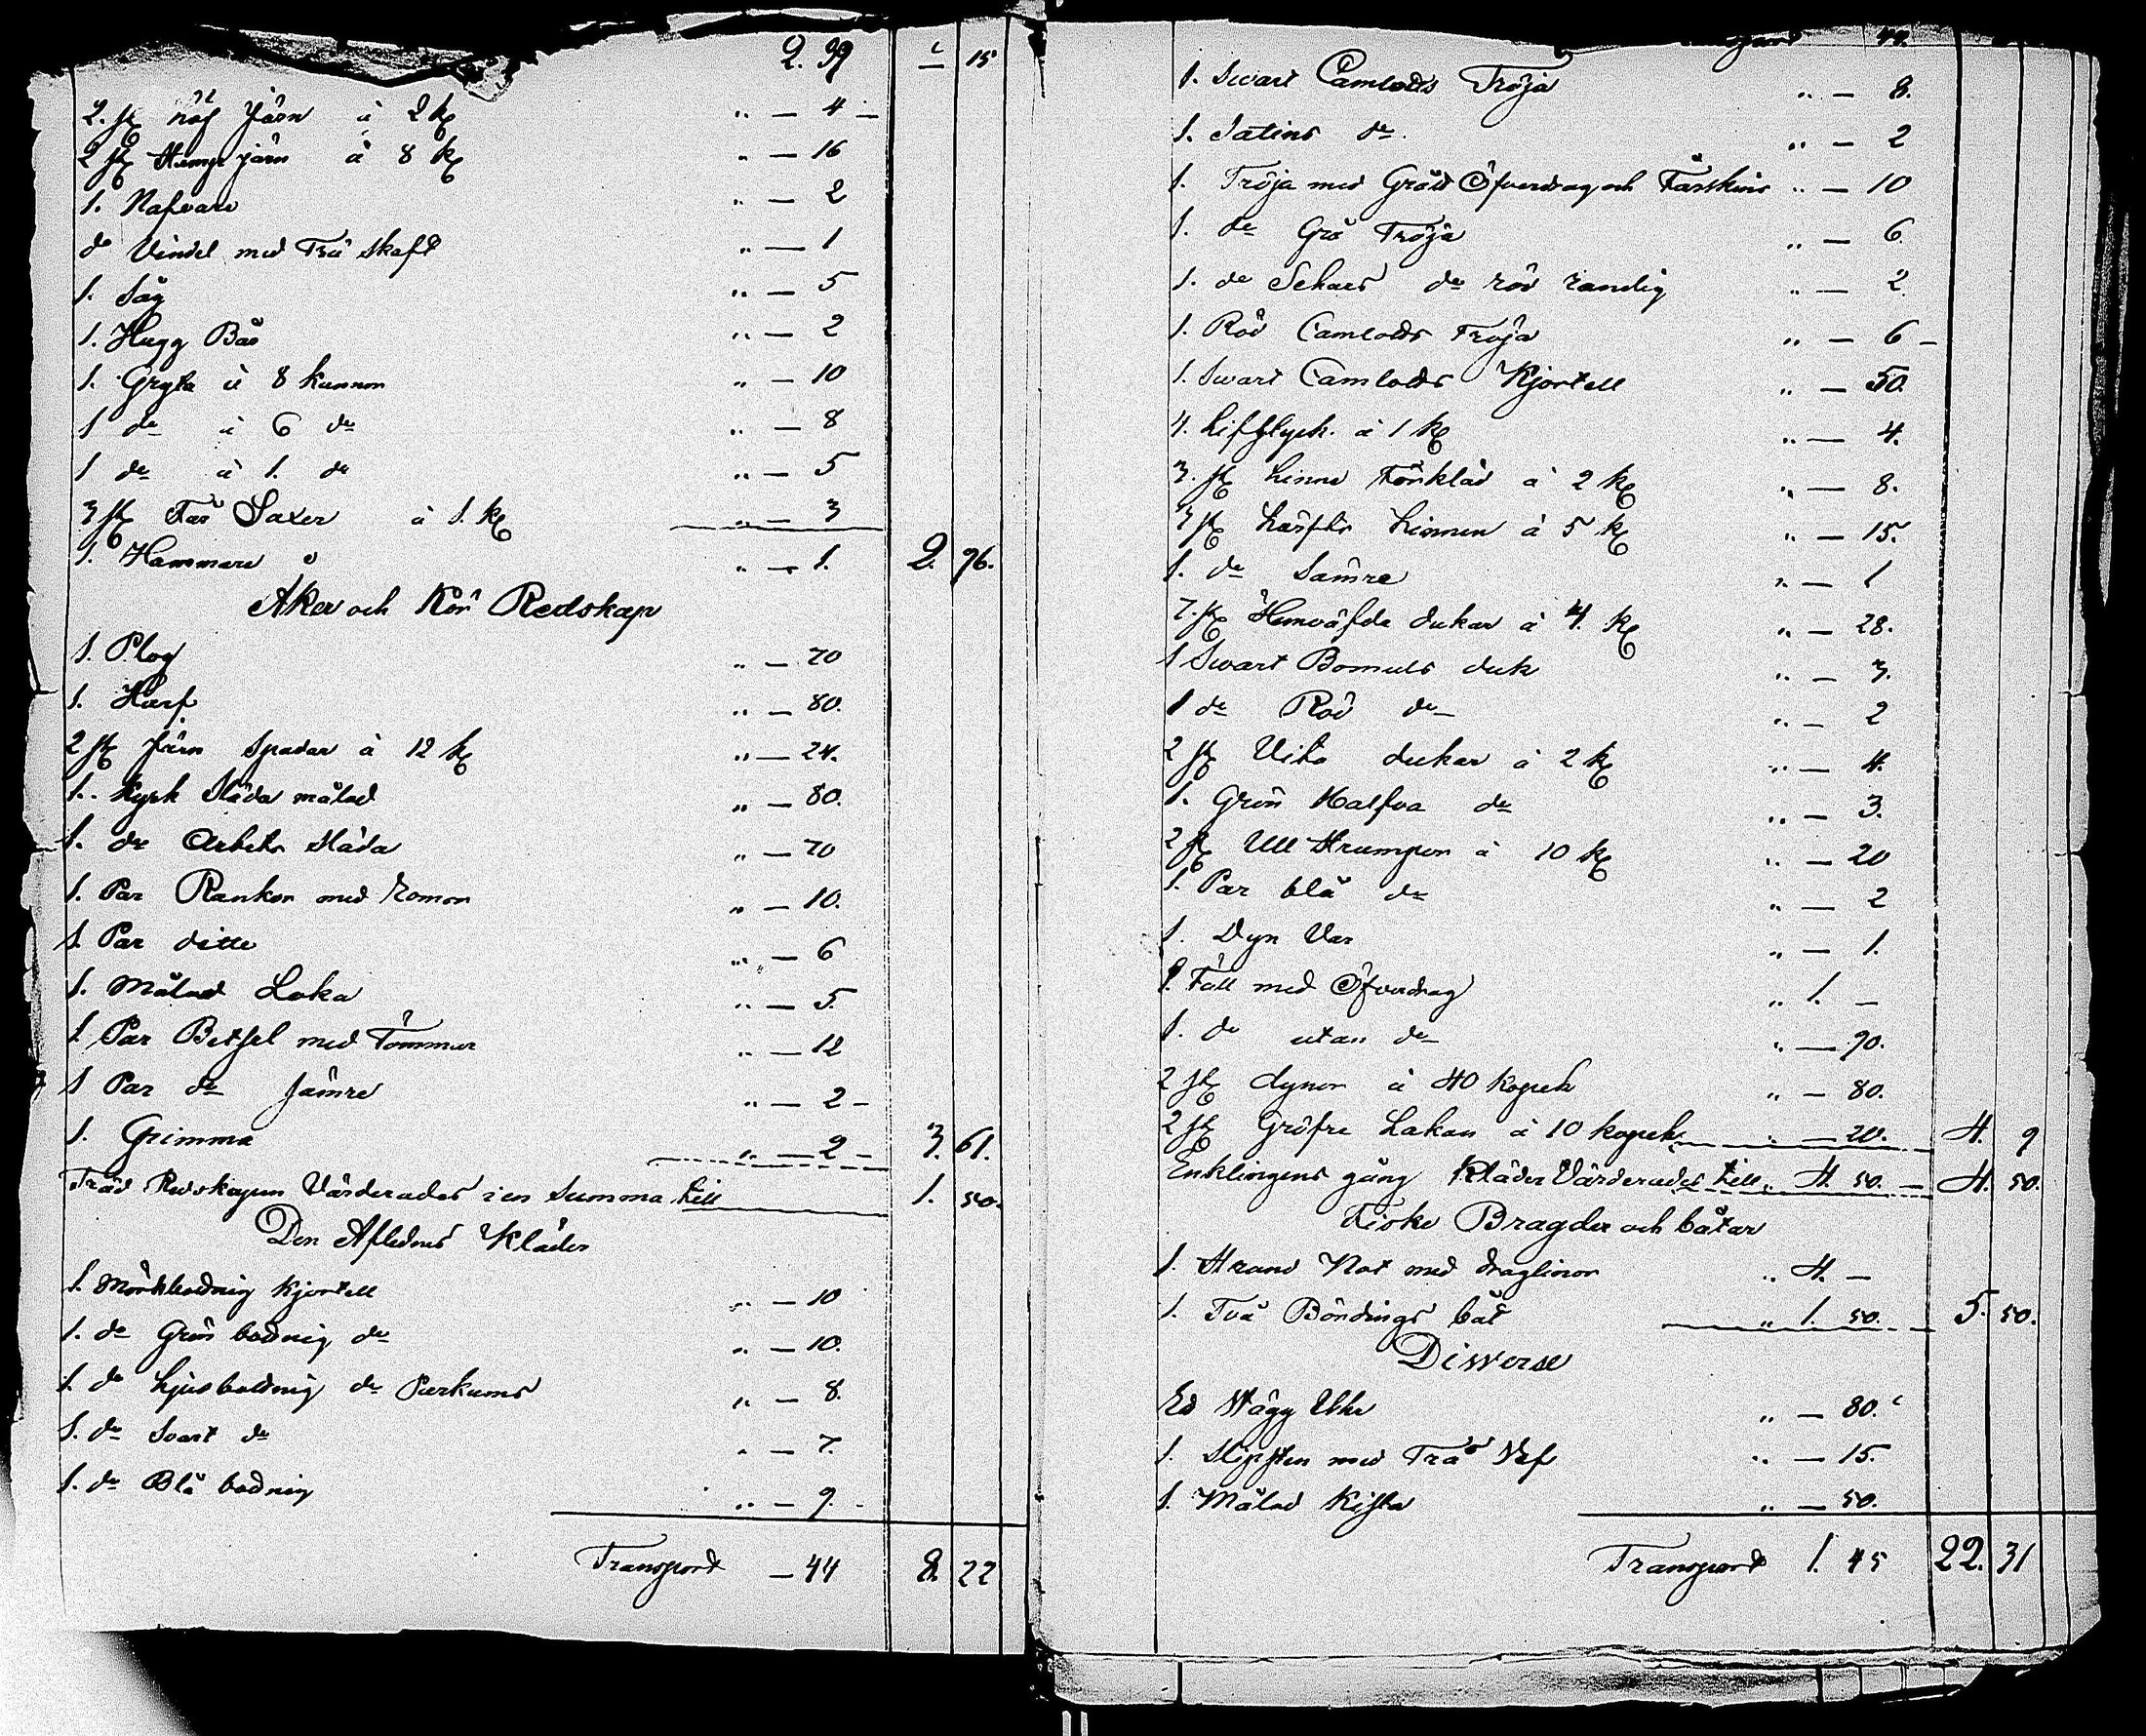 2. 39 " 15
2. st Höf Järn à 2 k " — 4 —
2 st Stämp järn à 8 k " — 16
1. Nafvare " — 2
d Vindel med Trä skaft " — 1
1. Såg " — 5
1. Hugg Bås " — 2
1. Gryta à 8 kannor " — 10
1 do à 6 do " — 8
1 do à 1. do " — 5
3 st Får Saxer à 1. k " — 3
1. Hammare " — 1. 2. 96.
Åker och Kör Redskap
1. Plog " — 70
1. Harf " — 80.
2 st Järn spadar à 12 k " — 24.
1. Kyrk släda målad " — 80.
1. do Arbets släda " — 70
1. Par Rankor med remor " — 10.
1 Par ditto " — 6
1. målad Loka " — 5.
1. Par Betsel med Tömmar " — 12
1 Par do sämre " — 2 —
1. Grimma " — 2 — 3. 61.
Träd Redskapen Värderades i en Summa till 1. 50.
Den Aflednes Kläder
1. Mörkbodnig Kjortell " — 10
1. do Grön bodnig do " — 10.
1. do Ljusbodnig do Parkums " — 8.
1. do Svart do " — 7.
1. do Blå bodnig " — 9.
Transport — 44 8. 22
44.
1. Swart Camlotts Tröja " — 8.
1. Satins do " — 2
1. Tröja med Grått Öfverdrag och Fårskins " — 10
1. do Grå Tröja " — 6.
1. do do röd randig " — 2.
1. Röd Camlotts Tröja " — 6 —
1. Swart Camlotts Kjortell " — 50.
4. Lifstyck. à 1 k " — 4.
3. st Linne Förkläd à 2 k " — 8.
3 st Lärfts Linnen à 5 k " — 15.
1. do Sämre " — 1
7. st Hemväfda dukar à 4. k " — 28.
1 Swart Bomuls duk " — 3.
1 do Röd do " — 2
2 st Vita dukar à 2 k " — 4.
1. Grön Halfva do " — 3.
2 st Ull Strumpor à 10 k " — 20
1. Par blå do " — 2
1. Dyn Var " — 1.
1. Fäll med Öfverdrag " 1. —
1. do utan do " — 90.
2 st dynor à 40 Kopek " — 80.
2 st Gröfre Lakan à 10 kopek " — 20. 4. 9
Enklingens gång Kläder Värderades till " 4. 50. — 4. 50.
Fiske Bragder och båtar
1. Strand Not med draglinor " 4. —
1. Två Böndings båt " 1. 50. 5. 50.
Diwerse
Ed Wägg Uhr " — 80.
1. Slipsten med Trä Vef " — 15.
1. Målad Kista " — 50.
Transport 1. 45 22. 31